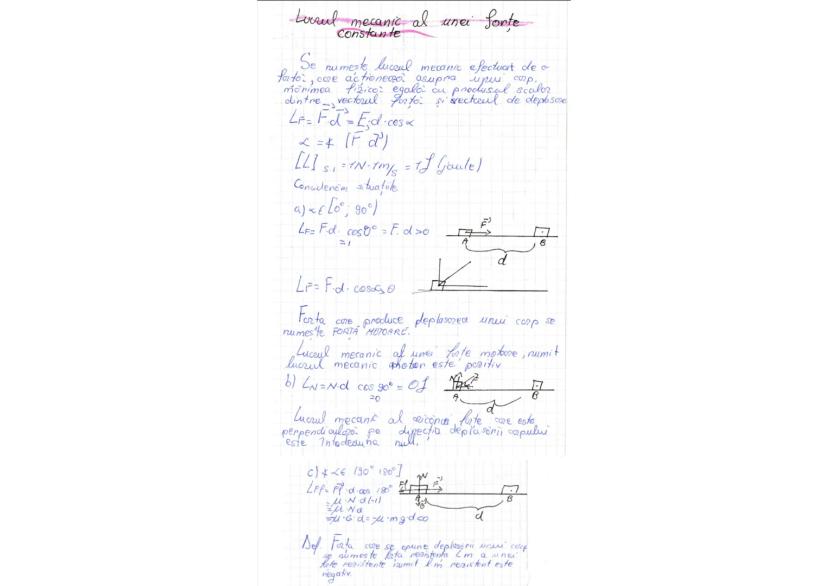 Lucrul mecanic al unei forțe
constante
Se numește lucrul mecanic efectuat de o
forță, care acționează asupra unui corp,
mărimea fizică egală cu produsul scalar
dintre vectorul forță și vectorul de deplasare
LF = F d = F d · cos α
α = ∢ (F d)
[L] S.I = 1N · 1m/s = 1J (joule)
Considerăm situațiile
a) α ∈ [0°; 90°)
LF = F·d · cos 0° = F · d > 0
=1
F
A B
d
LF = F·d · cos α > 0
Forța care produce deplasarea unui corp se
numește FORȚĂ MOTOARE.
Lucrul mecanic al unei forțe motoare, numit
lucrul mecanic motor este pozitiv
b) LN = N·d cos 90° = 0J
=0
N F
A B
d
Lucrul mecanic al oricărei forțe care este
perpendiculară pe direcția deplasării corpului
este întodeauna null.
c) ∢ α ∈ (90° 180°]
LFf = Ff · d · cos 180°
= μ · N d (-1)
= -μ · N d
= -μ · G · d = -μ · m g d < 0
Ff N F
A B
G
d
Def. Forța care se opune deplasării unui corp
se numește forță rezistentă Lm a unei
forțe rezistente numit Lm rezistent este
negativ.